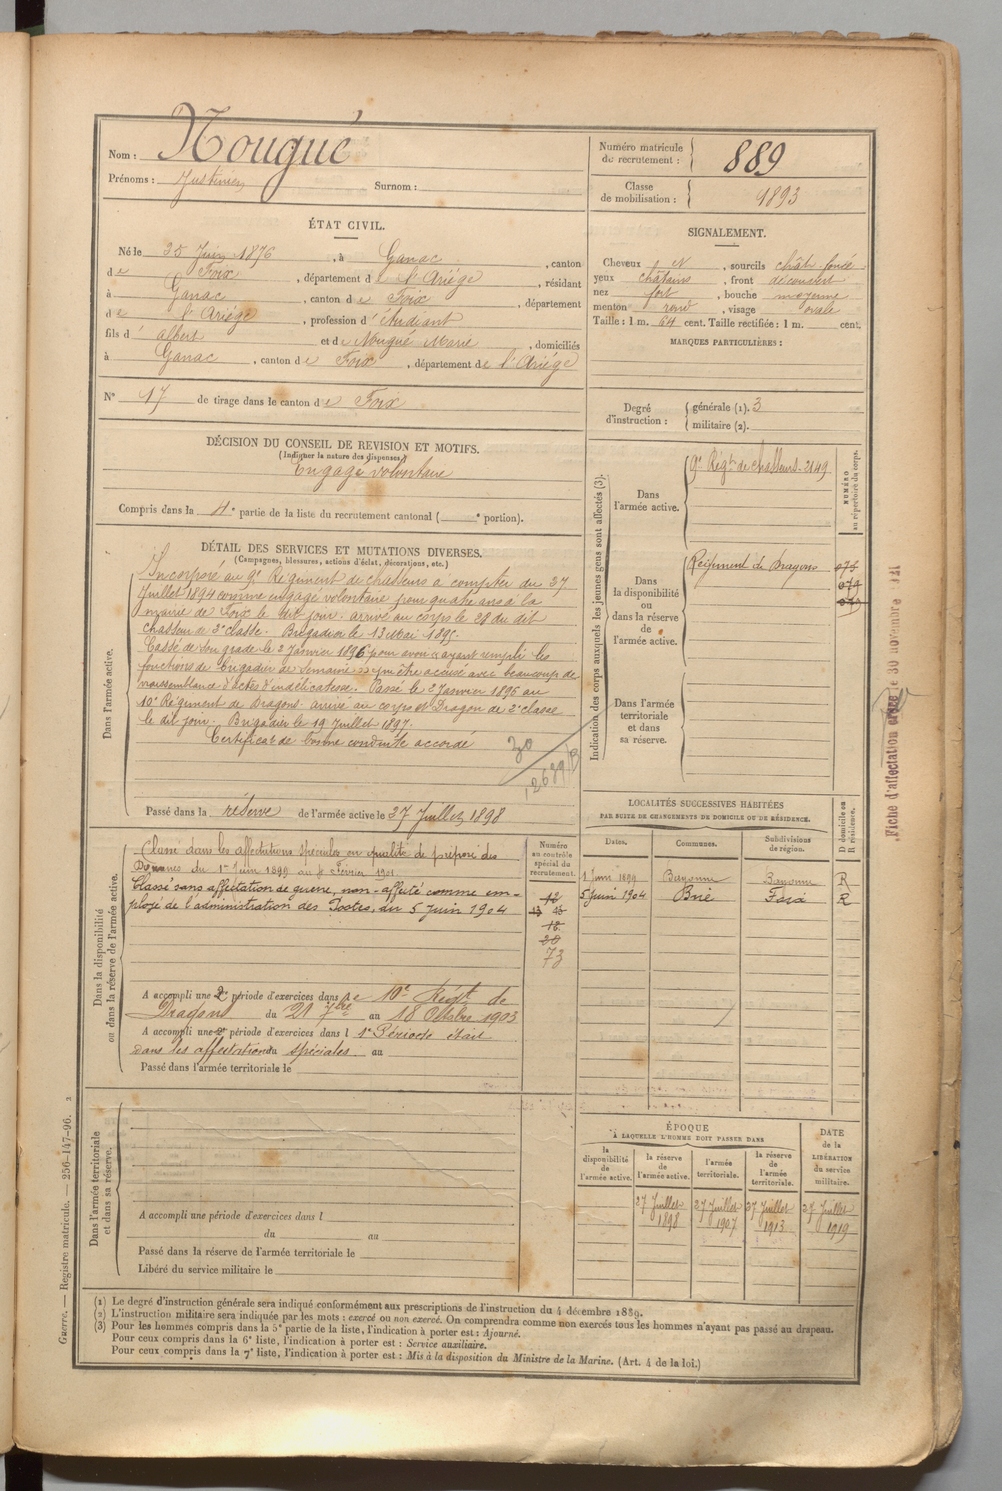 Nom : Nougué
Prénoms : Justinien Surnom :
Numéro matricule de recrutement : 889
Classe de mobilisation : 1893
ÉTAT CIVIL.
Né le 25 Juin 1876, à Ganac, canton
de Foix, département de l'Ariége, résidant
à Ganac, canton de Foix, département
de l'Ariége, profession d'étudiant
fils d'albert et de Nougué Marie, domiciliés
à Ganac, canton de Foix, département de l'Ariége
N° 17 de tirage dans le canton de Foix
SIGNALEMENT.
Cheveux N, sourcils chât. foncé
yeux châtains, front découvert
nez fort, bouche moyenne
menton rond, visage ovale
Taille : 1 m. 64 cent. Taille rectifiée : 1 m. cent.
MARQUES PARTICULIÈRES :
Degré d'instruction : générale (1). 3
militaire (2).
DÉCISION DU CONSEIL DE REVISION ET MOTIFS.
(Indiquer la nature des dispenses)
Engagé volontaire
Compris dans la 4e partie de la liste du recrutement cantonal ( e portion).
DÉTAIL DES SERVICES ET MUTATIONS DIVERSES.
(Campagnes, blessures, actions d'éclat, décorations, etc.)
Dans l'armée active.
Incorporé au 9e Régiment de chasseurs à compter du 27
Juillet 1894 comme engagé volontaire pour quatre ans à la
mairie de Foix le dit jour. arrivé au corps le 28 du dit
chasseur de 2e classe. Brigadier le 13 Mai 1895.
Cassé de son grade le 2 Janvier 1896 pour avoir ayant rempli les
fonctions de brigadier de semaine être accusé avec beaucoup de
vraissemblance d'actes d'indélicatesse. Passé le 2 Janvier 1896 au
10e Régiment de Dragons arrivé au corps et Dragon de 2e classe
le dit jour. Brigadier le 19 Juillet 1897.
Certificat de bonne conduite accordé
Passé dans la réserve de l'armée active le 27 Juillet 1898
Indication des corps auxquels les jeunes gens sont affectés (3).
Dans l'armée active.
9e Régt de chasseurs - 2149
NUMÉRO au répertoire du corps.
Dans la disponibilité ou dans la réserve de l'armée active.
Régiment de Dragons
Dans l'armée territoriale et dans sa réserve.
LOCALITÉS SUCCESSIVES HABITÉES
PAR SUITE DE CHANGEMENTS DE DOMICILE OU DE RÉSIDENCE.
Dates. Communes. Subdivisions de région. D domicile ou R résidence.
1 Juin 1899 Bayonne Bayonne R
5 Juin 1904 Brie Foix R
Dans la disponibilité ou dans la réserve de l'armée active.
Numéro au contrôle spécial du recrutement.
Classé dans les affectations spéciales en qualité de préposé des
Douanes du 1er Juin 1899 au Février 1901.
Classé sans affectation de guerre, non-affecté comme em-
ployé de l'administration des Postes, du 5 Juin 1904
12
13 43
18
20
73
A accompli une 2e période d'exercices dans le 10e Régt de
Dragons du 21 7bre au 18 Octobre 1903
A accompli une 2e période d'exercices dans l 1e Période était
dans les affectations du spéciales. au
Passé dans l'armée territoriale le
Dans l'armée territoriale et dans sa réserve.
A accompli une période d'exercices dans l
du au
Passé dans la réserve de l'armée territoriale le
Libéré du service militaire le
ÉPOQUE
À LAQUELLE L'HOMME DOIT PASSER DANS
la disponibilité de l'armée active.
la réserve de l'armée active.
l'armée territoriale.
la réserve de l'armée territoriale.
DATE de la LIBÉRATION du service militaire.
27 Juillet 1898 27 Juillet 1907 27 Juillet 1913 27 Juillet 1919
(1) Le degré d'instruction générale sera indiqué conformément aux prescriptions de l'instruction du 4 décembre 1889.
(2) L'instruction militaire sera indiquée par les mots : exercé ou non exercé. On comprendra comme non exercés tous les hommes n'ayant pas passé au drapeau.
(3) Pour les hommes compris dans la 5e partie de la liste, l'indication à porter est : Ajourné.
Pour ceux compris dans la 6e liste, l'indication à porter est : Service auxiliaire.
Pour ceux compris dans la 7e liste, l'indication à porter est : Mis à la disposition du Ministre de la Marine. (Art. 4 de la loi.)
Guerre. — Registre matricule. — 256-147-96.
Fiche d'affectation créée le 30 novembre